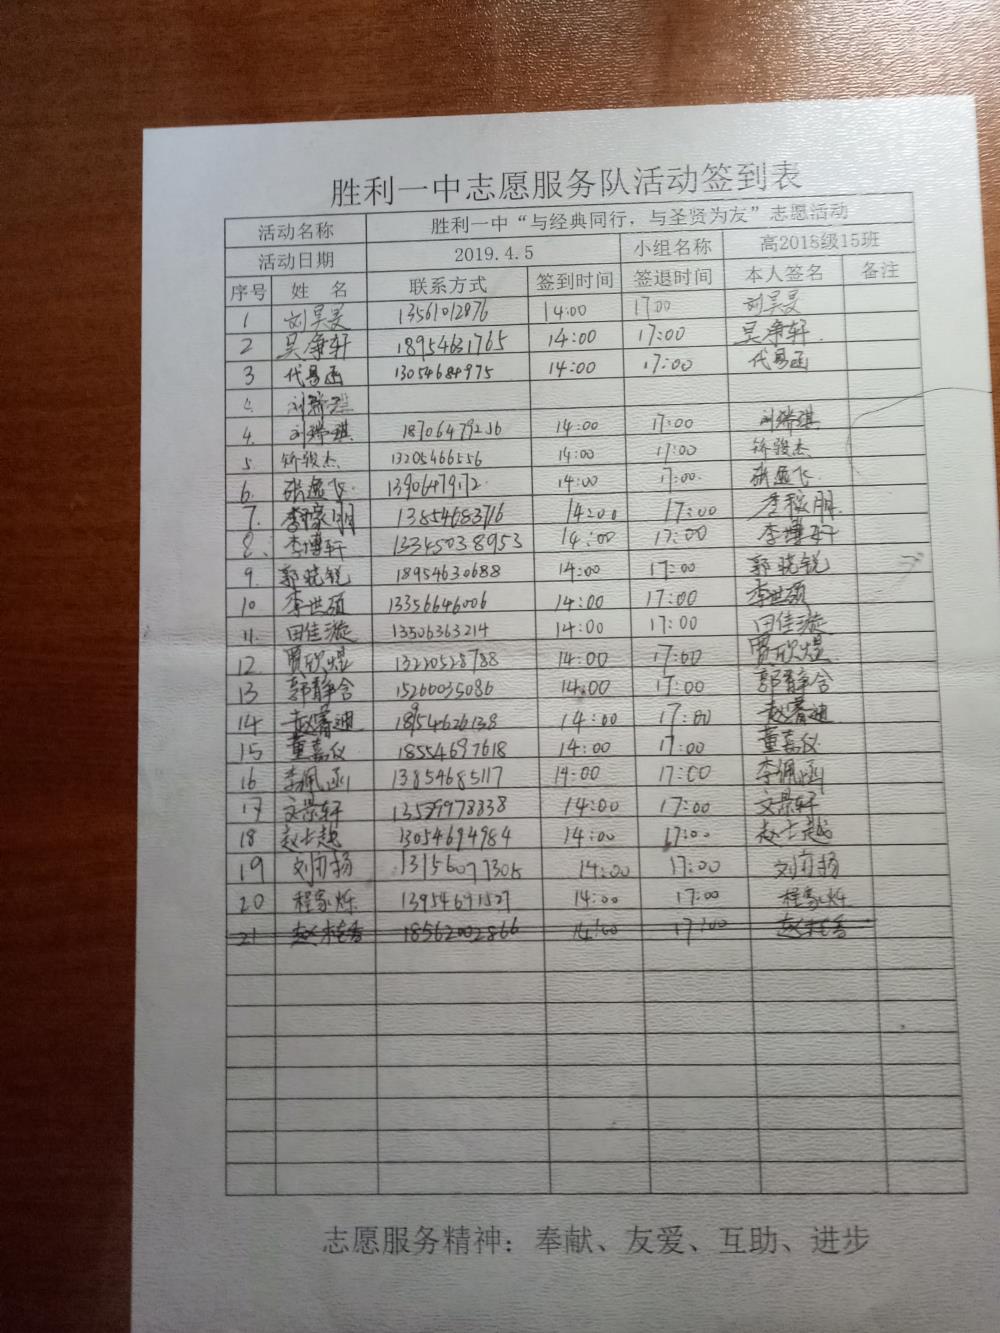 胜利一中志愿服务队活动签到表
活动名称 胜利一中“与经典同行，与圣贤为友”志愿活动
活动日期 2019.4.5 小组名称 高2018级15班
序号 姓 名 联系方式 签到时间 签退时间 本人签名 备注
1 刘昊旻 13561012876 14:00 17:00 刘昊旻
2 吴净轩 18954631765 14:00 17:00 吴净轩
3 代易函 13054684975 14:00 17:00 代易函
4.
4. 刘瑞琪 18706479236 14:00 17:00 刘瑞琪
5 矫骏杰 13205466556 14:00 17:00 矫骏杰
6. 张逸飞 13906479172 14:00 17:00 张逸飞
7. 李稼朋 13854683716 14:00 17:00 李稼朋
8. 李博轩 13345038953 14:00 17:00 李博轩
9. 郭晓锐 18954630688 14:00 17:00 郭晓锐
10 李世硕 13356646006 14:00 17:00 李世硕
11. 田佳漩 13506363214 14:00 17:00 田佳漩
12 贾欣煜 13220528788 14:00 17:00 贾欣煜
13 郭静含 15266035086 14:00 17:00 郭静含
14 赵睿迪 18954626138 14:00 17:00 赵睿迪
15 董嘉仪 18554697618 14:00 17:00 董嘉仪
16 李佩函 13854685117 14:00 17:00 李佩函
17 文景轩 14:00 17:00 文景轩
18 赵士越 13054694984 14:00 17:00 赵士越
19 13156077305 14:00 17:00
20 程家烁 13954691527 14:00 17:00 程家烁
21 18562002866 14:00 17:00
志愿服务精神：奉献、友爱、互助、进步